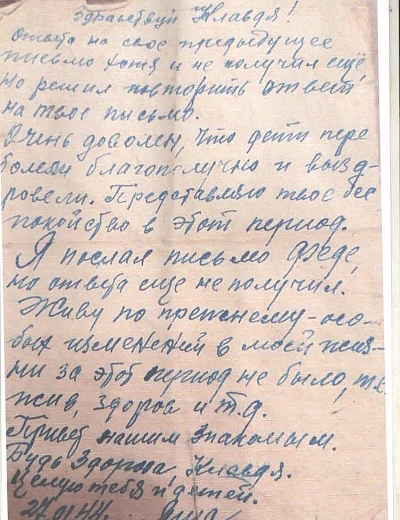 Здравствуй Клавдя!
Ответа на свое предыдущее
письмо хотя и не получил ещё,
но решил повторить ответ
на твое письмо.
Очень доволен, что дети пере
болели благополучно и выздо-
ровели. Представляю твое бес
покойство в этот период.
Я послал письмо Феде,
но ответа еще не получил.
Живу по прежнему - осо-
бых изменений в моей жиз-
ни за этот период не было, т.е.
жив, здоров и т.д.
Привет нашим знакомым.
Будь здорова, Клавдя.
Целую тебя и детей.